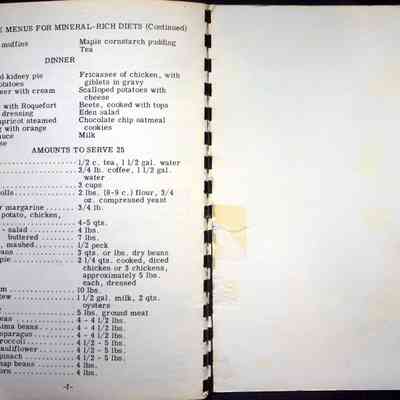 MENUS FOR MINERAL-RICH DIETS (Continued)
muffins Maple cornstarch pudding
Tea
DINNER
kidney pie Fricassee of chicken, with
giblets in gravy
with cream Scalloped potatoes with
cheese
with Roquefort Beets, cooked with tops
dressing Eden salad
steamed Chocolate chip oatmeal
with orange cookies
Milk
AMOUNTS TO SERVE 25
1/2 c. tea, 1 1/2 gal. water
3/4 lb. coffee, 1 1/2 gal.
water
3 cups
2 lbs. (8-9 c.) flour, 3/4
oz. compressed yeast
margarine 3/4 lb.
potato, chicken,
4-5 qts.
- salad 4 lbs.
buttered 7 lbs.
, mashed 1/2 peck
3 qts. or lbs. dry beans
pie 2 1/4 qts. cooked, diced
chicken or 3 chickens,
approximately 5 lbs.
each, dressed
10 lbs.
1 1/2 gal. milk, 2 qts.
oysters
5 lbs. ground meat
4 - 4 1/2 lbs.
beans 4 - 4 1/2 lbs.
4 - 4 1/2 lbs.
4 1/2 - 5 lbs.
4 1/2 - 5 lbs.
4 1/2 - 5 lbs.
beans 4 lbs.
4 lbs.